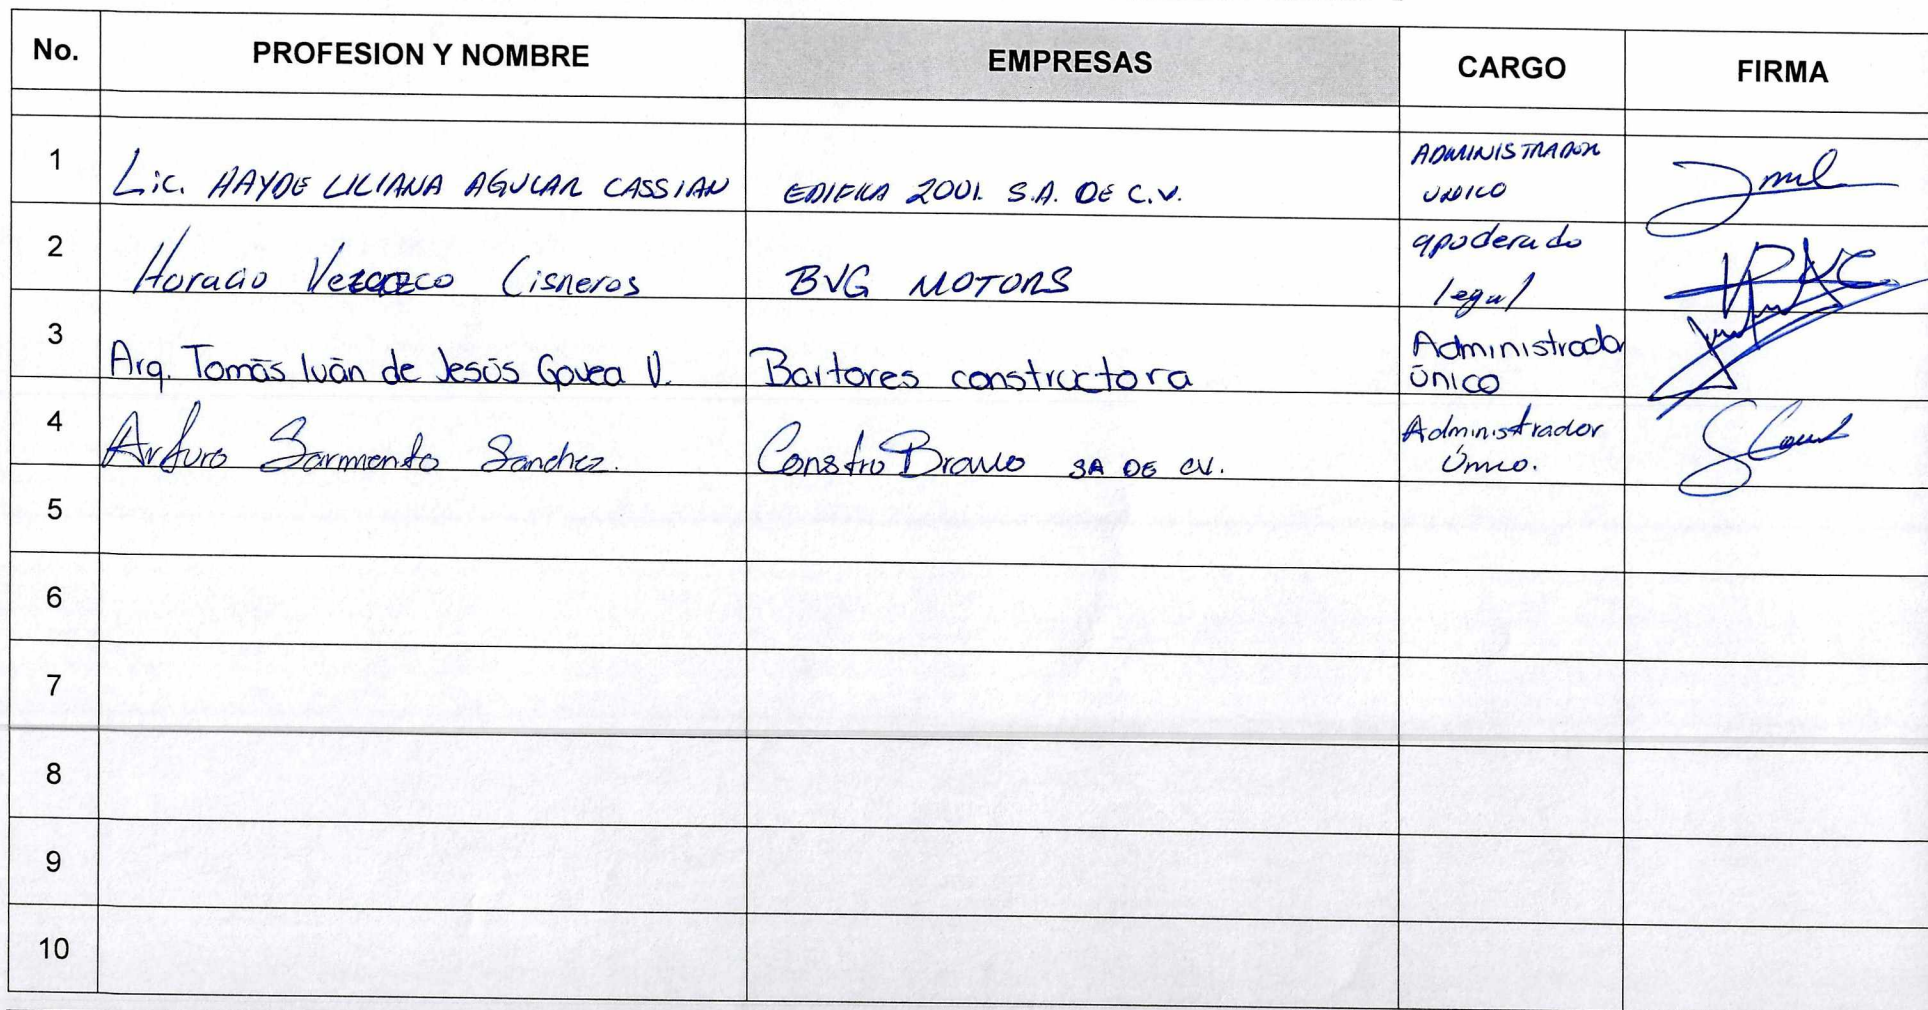 No. PROFESION Y NOMBRE EMPRESAS CARGO FIRMA
1 Lic. HAYDE LILIANA AGUILAR CASSIAN EDIFIKA 2001. S.A. DE C.V. ADMINISTRADOR
UNICO
2 Horacio Cisneros BVG MOTORS apoderado
legal
3 Arq. Tomás Iván de Jesús Govea V. Bartores constructora Administrador
Único
4 Arturo Sarmento Sanchez. Constru Bravo SA DE CV. Administrador
Único.
5
6
7
8
9
10